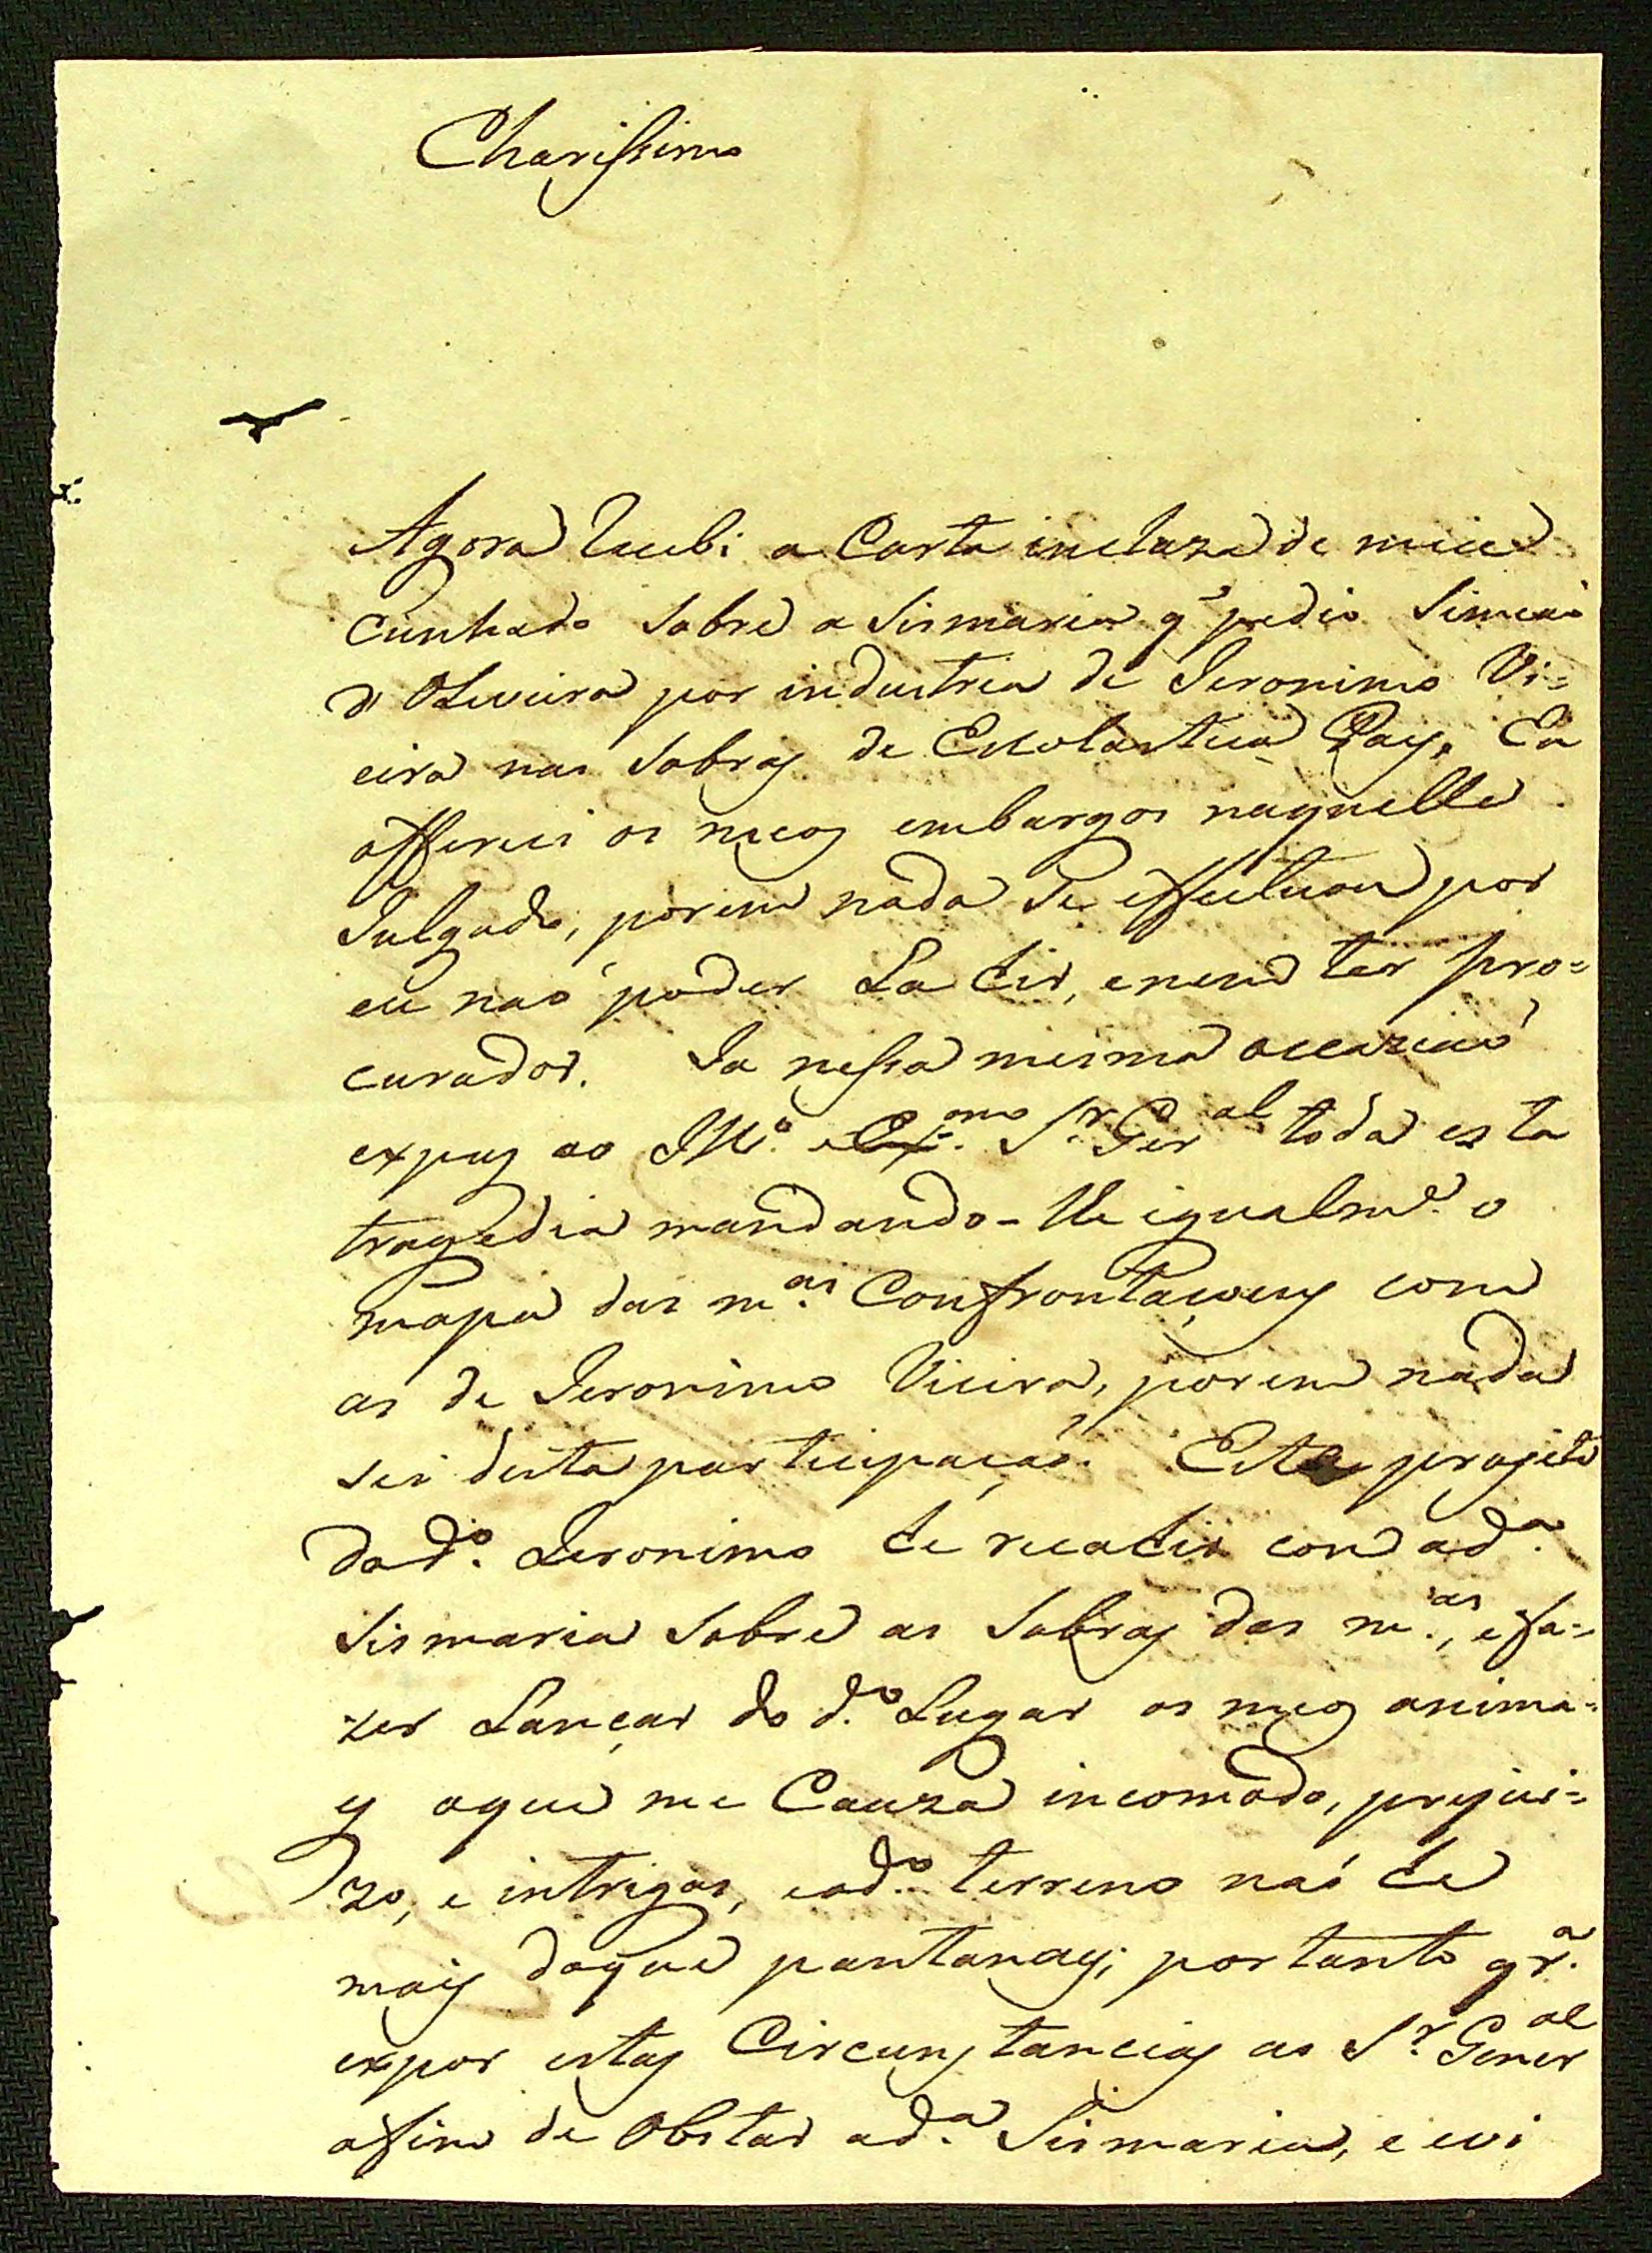 Charissimo
Agora recebi a Carta incluza de meu
Cunhado sobre a Sismaria q' pedio Simeaõ
d'Oliveira por industria de Jeronimo Vi=
eira nas sobras de Escolastica Pays. Eu
offereci os meos embargos naquelle
Julgado, porem nada se effectuou por
eu naõ poder La hir, e nem ter pro=
curador. Ja nessa mesma occaziaõ
expuz ao Ill.º e Ex.mo S.r Ger.al toda esta
tragedia mandando-lle igualm.e o
mapa das m.as Confrontaçoens com
as de Jeronimo Vieira, porem nada
sei desta participaçaõ. Este progeto
do d.º Jeronimo he recahir com a d.a
Sismaria sobre as Sobras das m.as, e fa=
zer Lançar do d.º Lugar os meos anima=
es o que me Cauza incomodo, prejui=
zo, e intrigas, e o d.º terreno naõ he
mais do que pantanaes; portanto qr.a
expor estas Circunstancias ao S.r Gener.al
afim de Obstar a d.a Sismaria, e evi